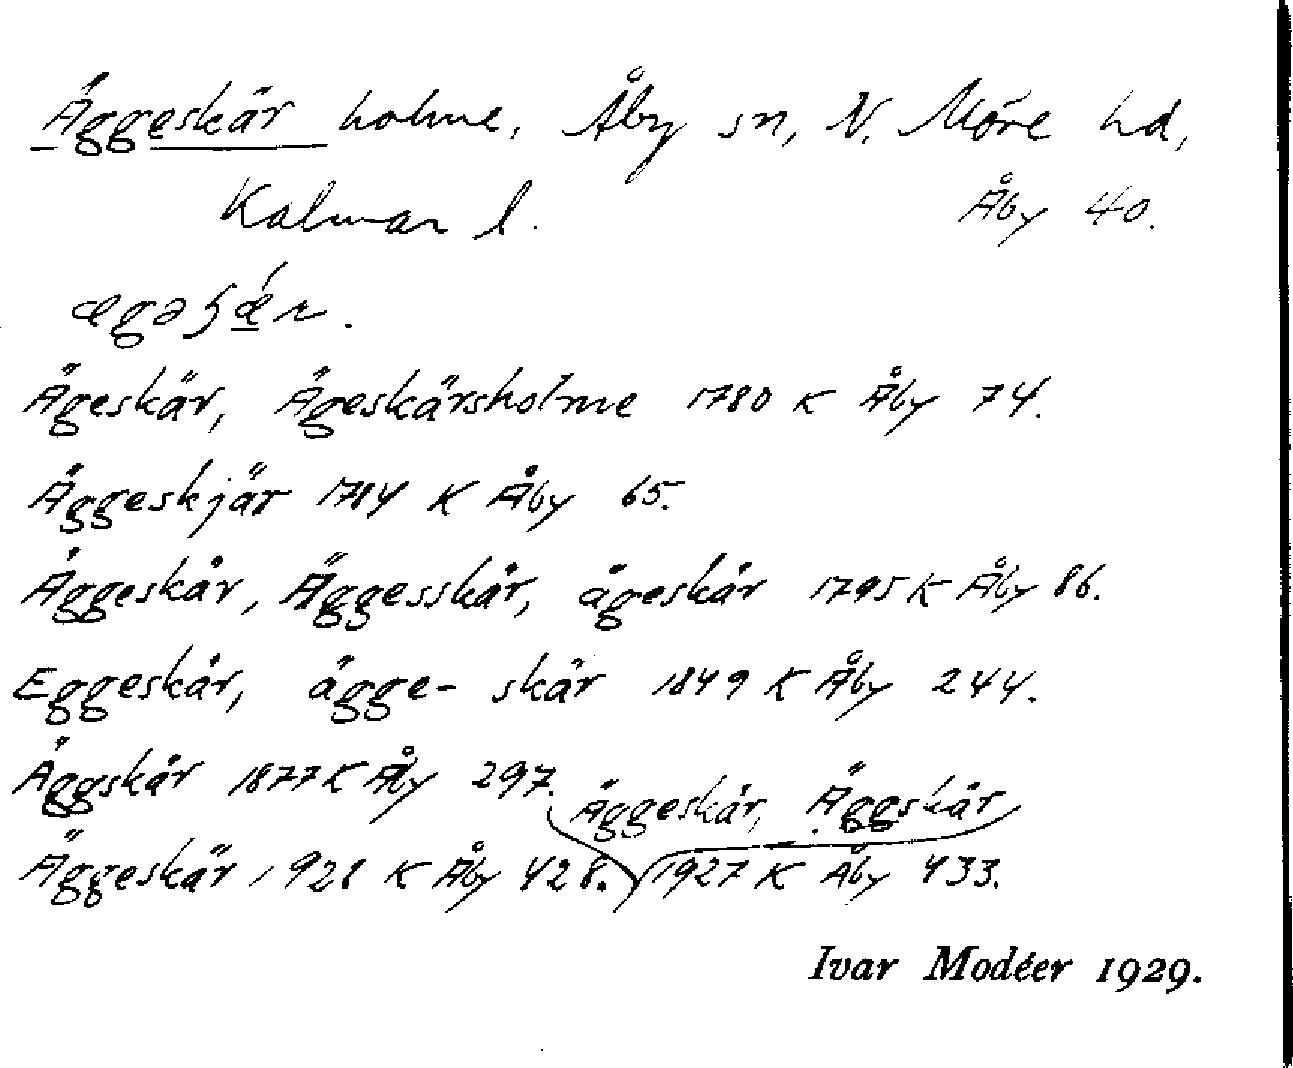 Äggeskär holme, Åby sn, N. Möre hd,
Kalmar l. Åby 40.
Ägeskär, Ägeskärsholme 1780 K Åby 74.
Äggeskjär 1784 K Åby 65.
Äggeskär, Äggesskär, ägeskär 1795 K Åby 86.
Eggeskär, ägge- skär 1849 K Åby 244.
Äggskär 1877 K Åby 297.
Äggeskär, Äggskär
Äggeskär 1928 K Åby 428. 1927 K Åby 433.
Ivar Modéer 1929.